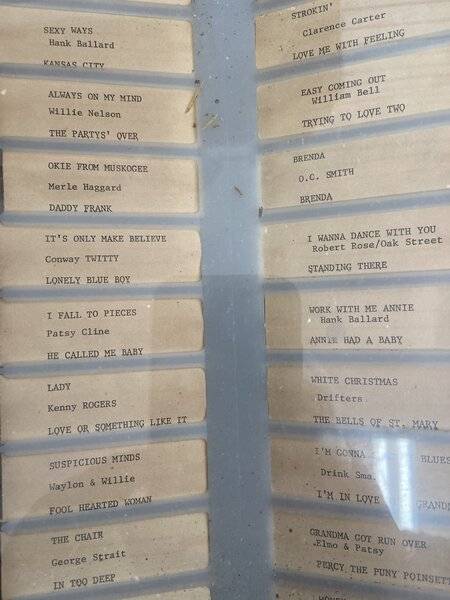 SEXY WAYS
Hank Ballard
KANSAS CITY
ALWAYS ON MY MIND
Willie Nelson
THE PARTYS' OVER
OKIE FROM MUSKOGEE
Merle Haggard
DADDY FRANK
IT'S ONLY MAKE BELIEVE
Conway TWITTY
LONELY BLUE BOY
I FALL TO PIECES
Patsy Cline
HE CALLED ME BABY
LADY
Kenny ROGERS
LOVE OR SOMETHING LIKE IT
SUSPICIOUS MINDS
Waylon & Willie
FOOL HEARTED WOMAN
THE CHAIR
George Strait
IN TOO DEEP
STROKIN'
Clarence Carter
LOVE ME WITH FEELING
EASY COMING OUT
William Bell
TRYING TO LOVE TWO
BRENDA
O.C. SMITH
BRENDA
I WANNA DANCE WITH YOU
Robert Rose/Oak Street
STANDING THERE
WORK WITH ME ANNIE
Hank Ballard
ANNIE HAD A BABY
WHITE CHRISTMAS
Drifters
THE BELLS OF ST. MARY
I'M GONNA BLUES
Drink Sma
I'M IN LOVE GRAND
GRANDMA GOT RUN OVER
Elmo & Patsy
PERCY THE PUNY POINSETT